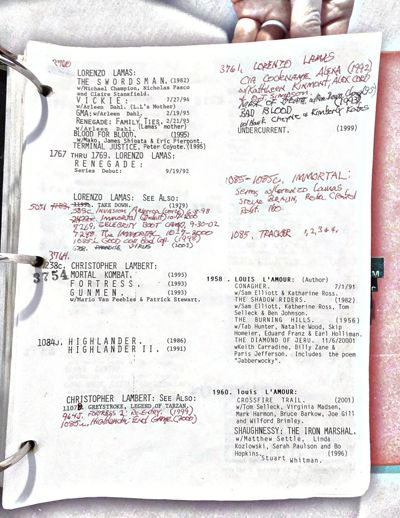 3760
LORENZO LAMAS:
THE SWORDSMAN. (1982)
w/Michael Champion, Nicholas Pasco
and Claire Stansfield.
VICKIE: 7/27/94
w/Arleen Dahl. (L.L's Mother)
GMA: w/Arleen Dahl. 2/19/95
RENEGADE: FAMILY TIES, 2/21/95
w/Arleen Dahl. (Lamas' mother)
BLOOD FOR BLOOD. (1995)
w/Mako, James Shigata & Eric Pierpont.
TERMINAL JUSTICE. Peter Coyote. (1995)
1767 THRU 1769. LORENZO LAMAS:
RENEGADE:
Series Debut: 9/19/92
LORENZO LAMAS: See Also:
5051 TAKE DOWN. (1979)
IMMORTAL
7269. CELEBRITY BOOT CAMP, 9-30-02
7287. The IMMORTAL
1085-L GOOD COP Bad Cop. (1998)
3764.
1238c. CHRISTOPHER LAMBERT:
3754 MORTAL KOMBAT. (1995)
FORTRESS. (1993)
GUNMEN. (1993)
w/Mario Van Peebles & Patrick Stewart.
1084J. HIGHLANDER. (1986)
HIGHLANDER II. (1991)
CHRISTOPHER LAMBERT: See Also:
1107 GREYSTROKE, LEGEND OF TARZAN.
964J. FORTRESS 2: Re-Entry. (1999)
1085 Highlander: End Game (2000)
3761. LORENZO LAMAS
CIA CODENAME ALEXA (1992)
w/KATHLEEN KINMONT, ALEX CORD
O.J. SIMPSON
MASK OF DEATH
BAD BLOOD
w/Hank Cheyne & Kimberly Kates
UNDERCURRENT. (1999)
1085-1085c. IMMORTAL:
Series w/Lorenzo Lamas,
Steve BRAUN,
1085. TRACKER 1, 2, 3, 4,
1958. LOUIS L'AMOUR: (Author)
CONAGHER. 7/1/91
w/Sam Elliott & Katherine Ross.
THE SHADOW RIDERS. (1982)
w/Sam Elliott & Katherine Ross, Tom
Selleck & Ben Johnson.
THE BURNING HILLS. (1956)
w/Tab Hunter, Natalie Wood, Skip
Homeier, Eduard Franz & Earl Holliman.
THE DIAMOND OF JERU. 11/6/20001
wKeith Carradine, Billy Zane &
Paris Jefferson. Includes the poem
"Jabberwocky".
1960. louis L'AMOUR:
CROSSFIRE TRAIL. (2001)
w/Tom Selleck, Virginia Madsen,
Mark Harmon, Bruce Barkow, Joe Gill
and Wilford Brimley.
SHAUGHNESSY: THE IRON MARSHAL.
w/Matthew Settle, Linda
Kozlowski, Sarah Paulson and Bo
Hopkins, (1996)
Stuart Whitman.